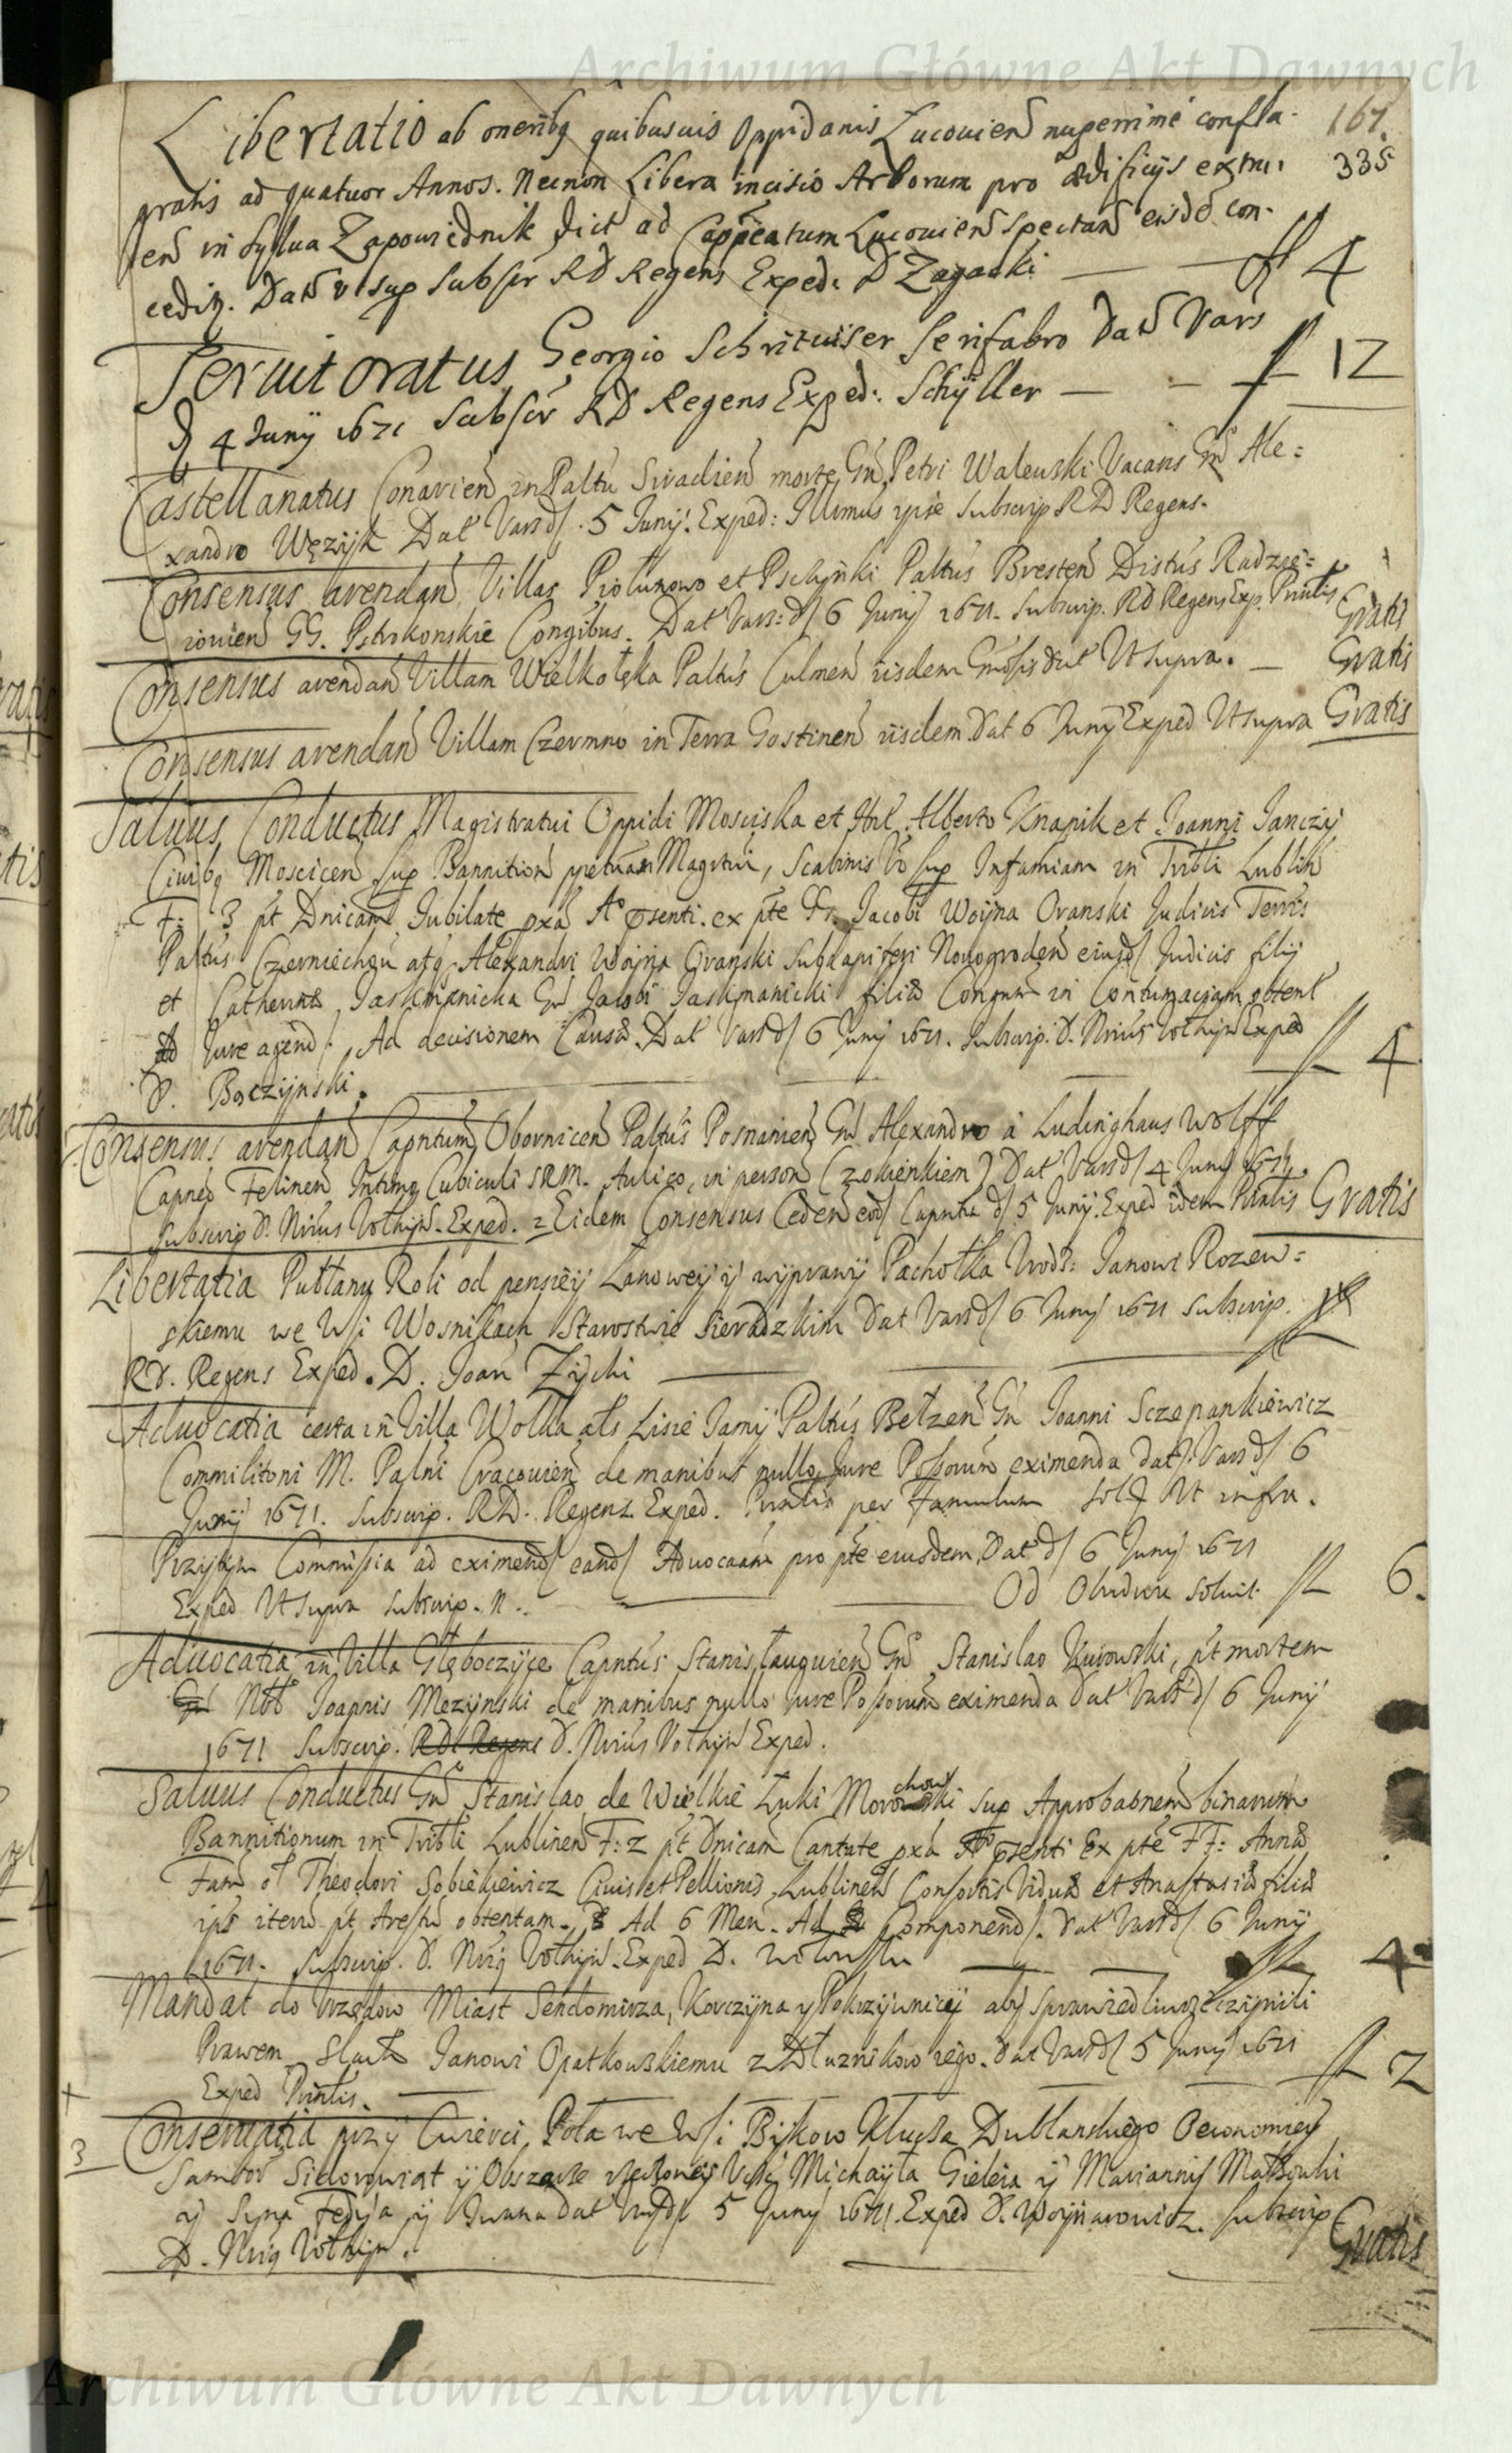 Archiwum Główne Akt Dawnych
Libertatio ab oneribq quibusuis Oppidanis Lucouien nuperrime confla-
167.
gratis ad quatuor Annos. Necnon Libera incisio Arborum pro ædificijs extru-
335
en in sylua Zapowiednik dict ad Capneatum Lucouien spectan eisdē con-
cedi. Dat vt sup Subscr RD Regens Exped. D Zagaski fl 4
Seruitoratus Georgio Schrituiser Serifabro Dat Vars
4 Junÿ 1671 Subscr RD Regens Exped: Schÿller fl 12
Castellanatus Conarien in Paltu Siradien morte Gn Petri Walewski Vacans Gn Ale=
xandro Węzÿk Dat Varsd 5 Junÿ. Exped: Illmus ipse Subscrip RD Regens.
Consensus arendan Villas Piotunowo et Psclÿnki Paltus Bresten Distus Radzie=
iouien GG. Pstrokonskie Congibus. Dat Vars: d 6 Junÿ 1671. Subscrip. RD Regens Exp. Pnntis Gratis
Consensus arendan Villam Wielkołąka Paltus Culmen iisdem Gnosis Dat Vt supra. Gratis
Consensus arendan Villam Czermno in Terra Gostinen iisdem Dat 6 Junÿ Exped Vt supra Gratis
Saluus Conductus Magistratui Oppidi Mosciska et Alberto Knapik et Joanni Janczÿ
Ciuibq Moscicen sup Bannition ppetuam Magrtui, Scabinis Vo sup Infamiam in Tribli Lublin
F: 3 pt Dnicam Jubilate pxa Ao psenti ex pte Gn Jacobi Woÿna Oranski Judicis Terris
Paltus Czerniechou atq Alexandri Woÿna Oranski Subdapiferi Nouogroden eiusd Judicis filÿ
et Catherinæ Jaskmanicka Gn Jacobi Jaskmanicki filiæ Congum in Contumaciam obtent
Jure agend. Ad decisionem Causæ. Dat Varsd 6 Junÿ 1671. Subscrip. D. Nrius Vothÿn Exped
D. Boczÿnski. fl 4
Consensus arendan Capntum Obornicen Paltus Posnanien Gn Alexandro à Ludinghaus Wolff
Capneo Felinen Intimo Cubiculi SRM. Aulico, in person Czokienkiem Dat Varsd 4 Junÿ 1671.
Subscrip D. Nrius Vothÿn. Exped. 2 Eidem Consensus Ceden eod Capntu d 5 Junÿ. Exped idem Pnntis Gratis
Libertatia Pułłanu Roli od pensiey Lanoweÿ ÿ wÿprawÿ Pachołka Vrodz: Janowi Rozew=
skiemu we Wsi Wosnikach Starostwie Sieradzkim Dat Varsd 6 Junÿ 1671 Subscrip.
RD. Regens Exped. D. Joan Zÿchi
Aduocatia certa in Villa Wolka als Lisie Jamÿ Paltus Bełzen Gn Joanni Sczepankiewicz
Commilitoni M. Palni Cracouien de manibus nullo Jure Possorum eximenda Dat Varsd 6
Junÿ 1671. Subscrip. RD. Regens Exped. Pnntis per Famulum Sol Vt infra.
Przÿtÿm Commissia ad eximend eand Aduocatiam pro pte eiusdem Dat d 6 Junÿ 1671
Exped Vt supra Subscrip. N. Od Oludwu soluit fl 6.
Aduocatia in Villa Głęboczÿce Capntus Stanisłauguien Gn Stanislao Kurowski, pt mortem
Nob Joannis Mezÿnski de manibus nullo Jure Possorum eximenda Dat Varsd 6 Junÿ
1671 Subscrip. RD Regens D. Nrius Vothÿn Exped.
Saluus Conductus Gn Stanislao de Wielkie Łuki Morochowski sup Approbaonem binarum
Bannitionum in Tribli Lublinen F: 2 pt Dnicam Cantate pxa Ao psenti Ex pte FF: Annæ
Fam ol Theodori Sobiekiewicz Ciuis et Pellionis Lublinen Consortis Viduæ et Anastasiæ filiæ
ips item pt Arestu obtentam. Ad 6 Men. Ad Componend. Dat Varsd 6 Junÿ
1671. Subscrip. D. Nrig Vothÿn. Exped D. fl 4
Mandat do Vrzędow Miast Sendomirza, Korczÿna y Pokrzÿwnicÿ abÿ sprawiedliwosc czÿnili
Prawem Slacht Janowi Opatkowskiemu z Dłuznikow iego. Dat Varsd 5 Junÿ 1671
Exped Pnntis. fl 2
3
Conseruatia przÿ Cwierci Pola we Wsi Bÿkow Klucza Dublanskiego Oeconomieÿ
Sambor Sidorowiat ÿ Obszarze rzeczoneÿ Michaÿła Gieleia ÿ Mariannÿ Małzonki
ÿ Sÿna Fedÿa ÿ Iwana Dat Varsd 5 Junÿ 1671. Exped D. Woÿnarowicz. Subscrip
D. Nrig Vothÿn. Gratis
Archiwum Główne Akt Dawnych